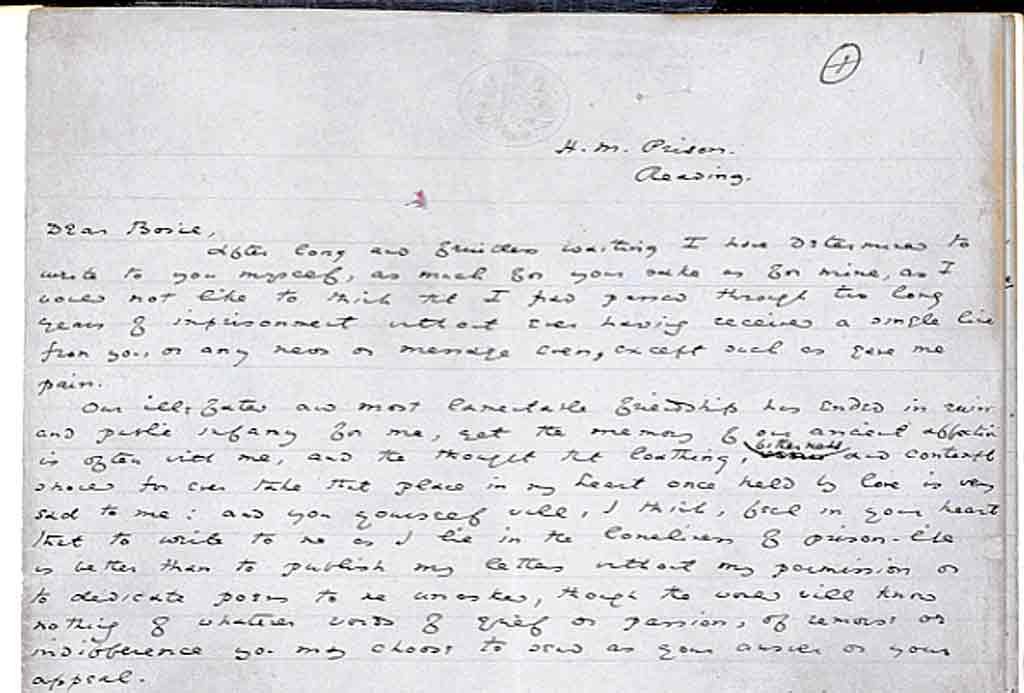 1
1
H. M. Prison.
Reading.
Dear Bosie,
After long and fruitless waiting I have determined to
write to you myself, as much for your sake as for mine, as I
would not like to think that I had passed through two long
years of imprisonment without ever having received a single line
from you, or any news or message even, except such as gave me
pain.
Our ill-fated and most lamentable friendship has ended in ruin
and public infamy for me, yet the memory of our ancient affection
is often with me, and the thought that loathing, bitterness and contempt
should for ever take that place in my heart once held by love is very
sad to me: and you yourself will, I think, feel in your heart
that to write to me as I lie in the loneliness of prison-life
is better than to publish my letters without my permission or
to dedicate poems to me unasked, though the world will know
nothing of whatever words of grief or passion, of remorse or
indifference you may choose to send as your answer or your
appeal.